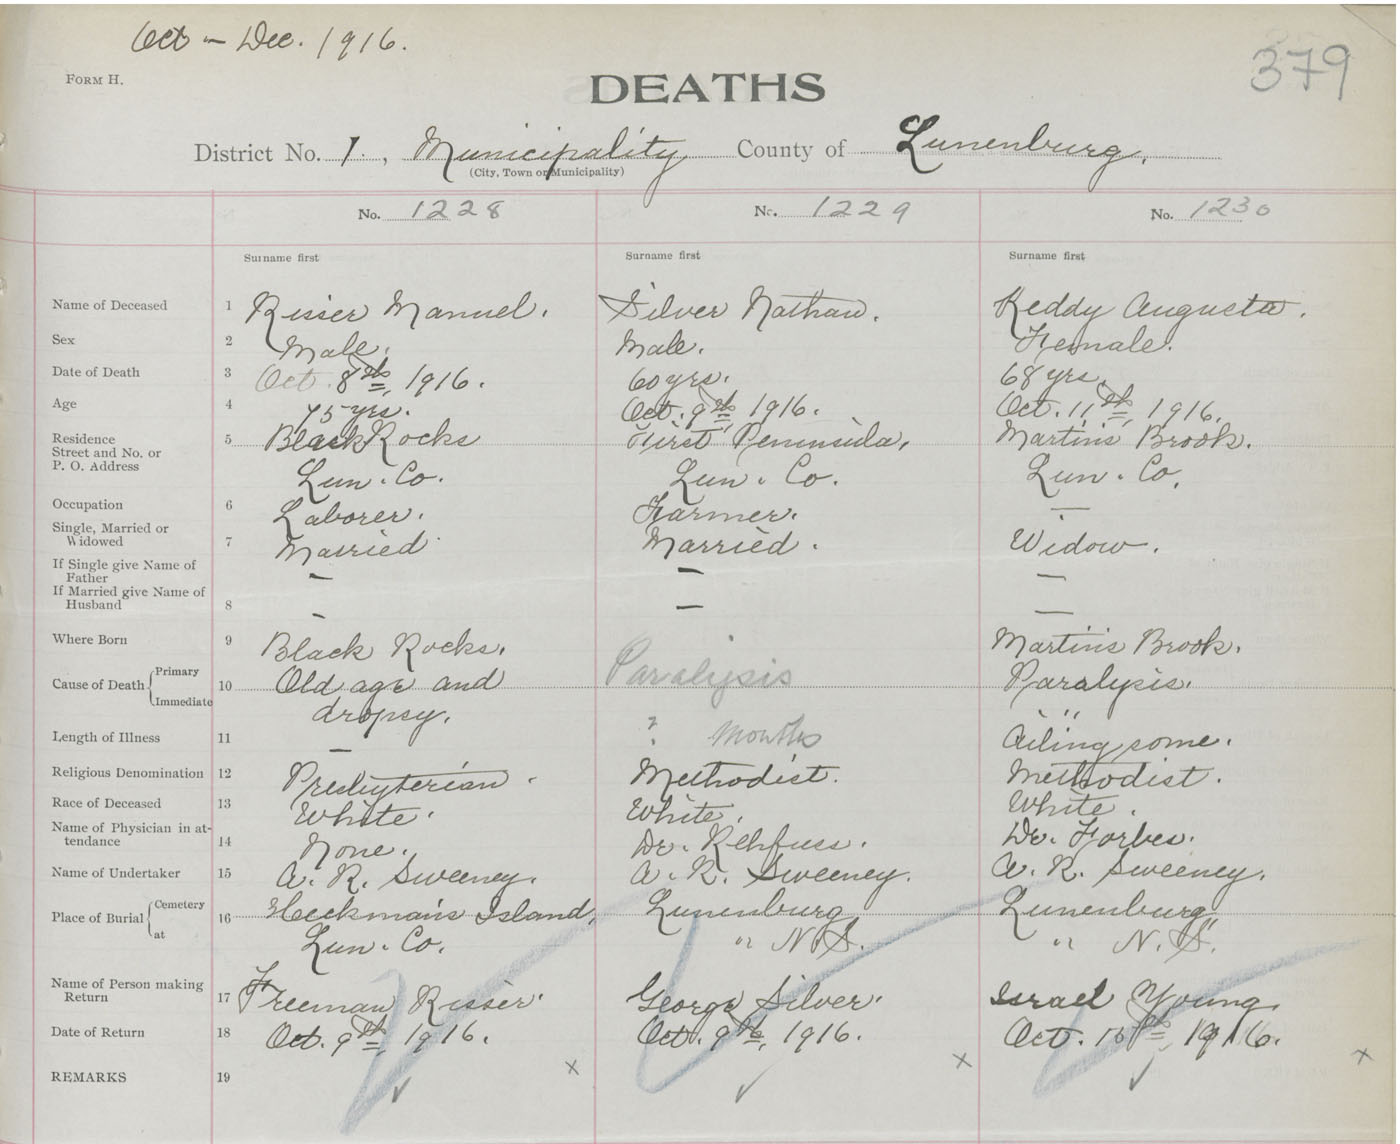 Oct - Dec. 1916.
379
FORM H.
DEATHS
District No. 1. , Municipality County of Lunenburg.
(City, Town or Municipality)
No. 1228 No. 1229 No. 1230
Surname first Surname first Surname first
Name of Deceased 1 Risser Manuel. Silver Nathan. Keddy Augusta.
Sex 2 Male. Male. Female.
Date of Death 3 Oct. 8th, 1916. 60 yrs. 68 yrs.
Age 4 75 yrs. Oct. 9th, 1916. Oct. 11th, 1916.
Residence 5 Black Rocks First Peninsula, Martin's Brook.
Street and No. or
P. O. Address Lun. Co. Lun. Co. Lun. Co.
Occupation 6 Laborer. Farmer. —
Single, Married or
Widowed 7 Married Married. Widow.
If Single give Name of
Father — — —
If Married give Name of
Husband 8 — — —
Where Born 9 Black Rocks. Martin's Brook.
Cause of Death { Primary 10 Old age and Paralysis Paralysis.
Immediate dropsy. " "
Length of Illness 11 — ? months Ailing some.
Religious Denomination 12 Presbyterian. Methodist. Methodist.
Race of Deceased 13 White. White. White.
Name of Physician in at-
tendance 14 None. Dr. Rehfuss. Dr. Forbes.
Name of Undertaker 15 A. R. Sweeney. A. R. Sweeney. A. R. Sweeney.
Place of Burial { Cemetery 16 Heckman's Island, Lunenburg Lunenburg
at Lun. Co. " N.S. " N.S.
Name of Person making
Return 17 Freeman Risser. George Silver. Israel Young.
Date of Return 18 Oct. 9th, 1916. Oct. 9th, 1916. Oct. 1916.
REMARKS 19 ✓ x ✓ x ✓ x